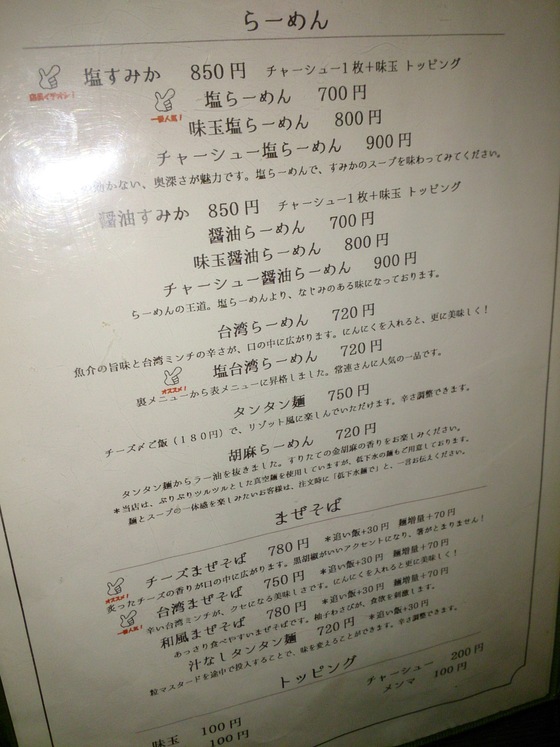 らーめん
塩すみか 850円 チャーシュー1枚+味玉 トッピング
店長イチオシ!
塩らーめん 700円
一番人気!
味玉塩らーめん 800円
チャーシュー塩らーめん 900円
かない、奥深さが魅力です。塩らーめんで、すみかのスープを味わってみてください。
醤油すみか 850円 チャーシュー1枚+味玉 トッピング
醤油らーめん 700円
味玉醤油らーめん 800円
チャーシュー醤油らーめん 900円
らーめんの王道。塩らーめんより、なじみのある味になっております。
台湾らーめん 720円
魚介の旨味と台湾ミンチの辛さが、口の中に広がります。にんにくを入れると、更に美味しく!
塩台湾らーめん 720円
オススメ!
裏メニューから表メニューに昇格しました。常連さんに人気の一品です。
タンタン麺 750円
チーズ〆ご飯(180円)で、リゾット風に楽しんでいただけます。辛さ調整できます。
胡麻らーめん 720円
タンタン麺からラー油を抜きました。すりたての金胡麻の香りをお楽しみください。
*当店は、ぷりぷりツルツルとした真空麺を使用していますが、低下水の麺もご用意しております。
麺とスープの一体感を楽しみたいお客様は、注文時に「低下水麺で」と、一言お伝えください。
まぜそば
チーズまぜそば 780円 *追い飯+30円 麺増量+70円
オススメ!
炙ったチーズの香りが口の中に広がります。黒胡椒がいいアクセントになり、箸がとまりません!
台湾まぜそば 750円 *追い飯+30円 麺増量+70円
一番人気!
辛い台湾ミンチが、クセになる美味しさです。にんにくを入れると更に美味しく!
和風まぜそば 780円 *追い飯+30円 麺増量+70円
あっさり食べやすいまぜそばです。柚子わさびが、食欲を刺激します。
汁なしタンタン麺 720円 *追い飯+30円
粒マスタードを途中で投入することで、味を変えることができます。辛さ調整できます。
トッピング
チャーシュー 200円
メンマ 100円
味玉 100円
100円